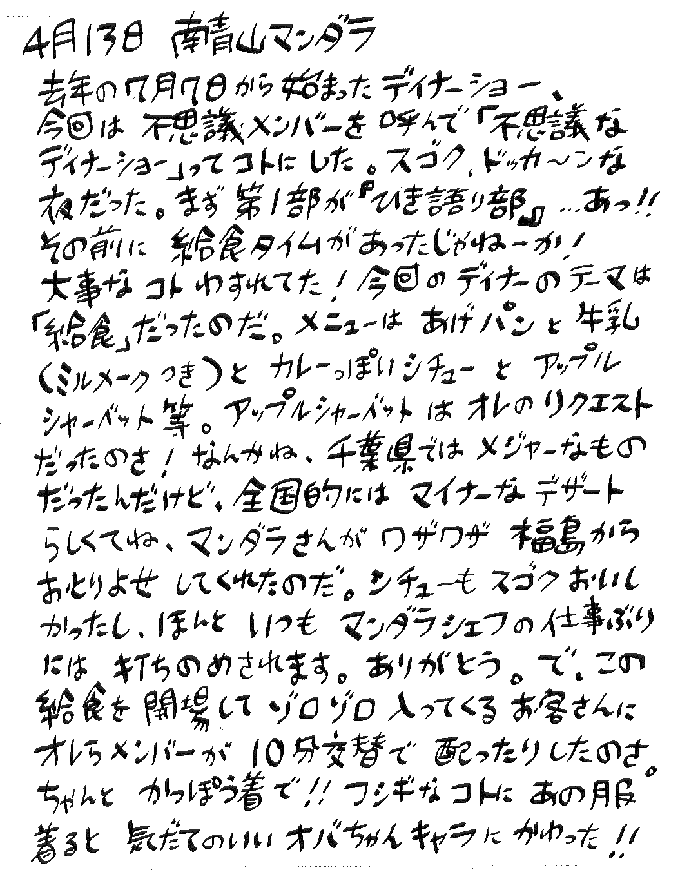 4月13日 南青山マンダラ
去年の7月7日から始まったディナーショー、
今回は不思議メンバーを呼んで「不思議な
ディナーショー」ってコトにした。スゴク、ドッカ〜ンな
夜だった。まず第1部が『ひき語り部』…あっ!!
その前に給食タイムがあったじゃねーか!
大事なコトわすれてた!今回のディナーのテーマは
「給食」だったのだ。メニューはあげパンと牛乳
(ミルメークつき)とカレーっぽいシチューとアップル
シャーベット等。アップルシャーベットはオレのリクエスト
だったのさ!なんかね、千葉県ではメジャーなもの
だったんだけど、全国的にはマイナーなデザート
らしくてね、マンダラさんがワザワザ福島から
おとりよせしてくれたのだ。シチューもスゴクおいし
かったし、ほんといつもマンダラシェフの仕事ぶり
には打ちのめされます。ありがとう。で、この
給食を開場してゾロゾロ入ってくるお客さんに
オレらメンバーが10分交替で配ったりしたのさ。
ちゃんとかっぽう着で!!フシギなコトにあの服
着ると気だてのいいオバちゃんキャラにかわった!!